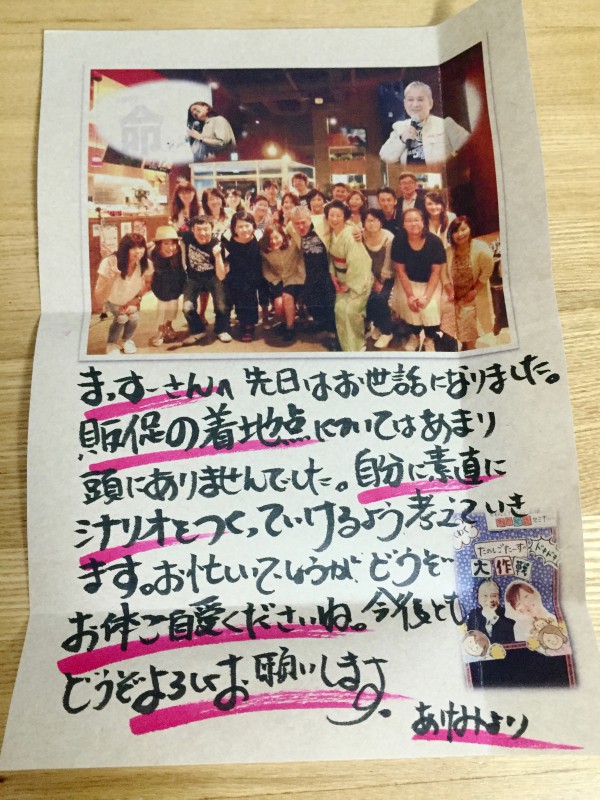 命
まっすーさんへ 先日はお世話になりました。
販促の着地点についてはあまり
頭にありませんでした。自分に素直に
シナリオをつくっていけるよう考えていき
ます。お忙しいでしょうが、どうぞ
お体ご自愛くださいね。今後とも
どうぞよろしくお願いします。
セミナー
たのしごとーすーパ
ドキドキ
大作戦